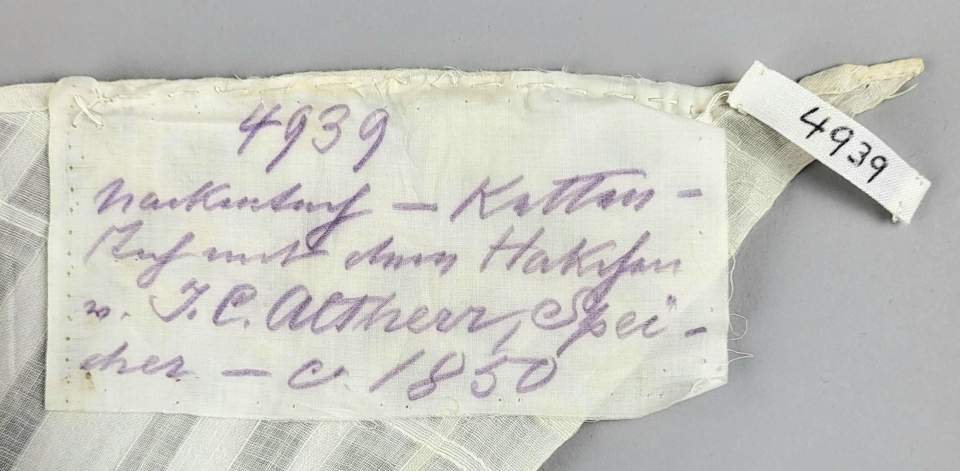 4939
Nackentuch – Ketten-
stich mit dem Häkchen
v. J. C. Altherr, Spei-
cher – c. 1850
4939